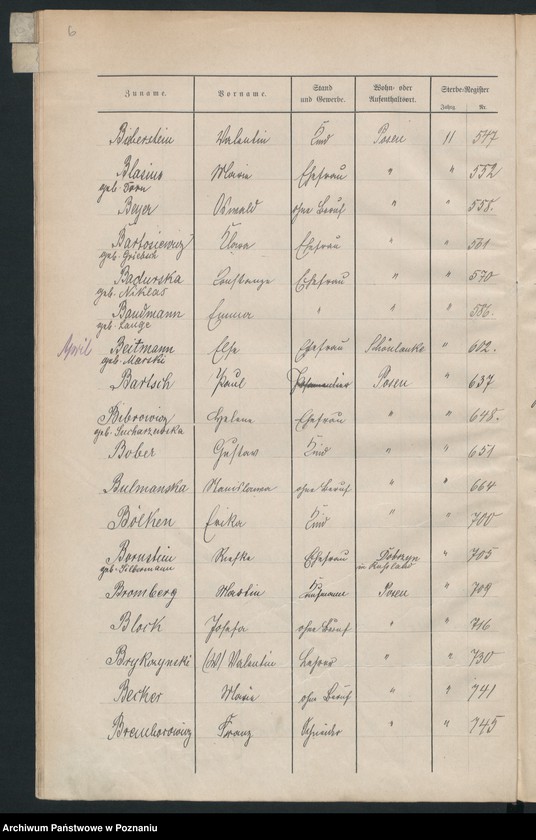 6
Zuname. Vorname. Stand und Gewerbe. Wohn- oder Aufenthaltsort. Sterbe-Register
Jahrg. Nr.
Biberstein Valentin Kind Posen 11 547
Blasius Marie Ehefrau " " 552
geb. Dorn
Beyer Oswald ohne Beruf " " 558.
Bartosiewicz Klara Ehefrau " " 561
geb.
Badurska Konstanze Ehefrau " " 570
geb. Niklas
Baudmann Emma " " " 586.
geb. Lange
April Beitmann Else Ehefrau Schönlanke " 602.
geb.
Bartsch Paul Posen " 637
Bibrowicz Helene Ehefrau " " 648.
geb. Sucharzewska
Bober Gustav Kind " " 651
Bulmanska Stanislawa ohne Beruf " " 664
Bölken Erika Kind " " 700
Bornstein Ehefrau Dobrzyn " 705
geb. Silbermann in Russland
Bromberg Martin Kaufmann Posen " 709
Block Josefa ohne Beruf " " 716
Brykczynski (W) Valentin Lehrer " " 730
Becker Marie ohne Beruf " " 741
Bremborowicz Franz Schneider " " 745
Archiwum Państwowe w Poznaniu